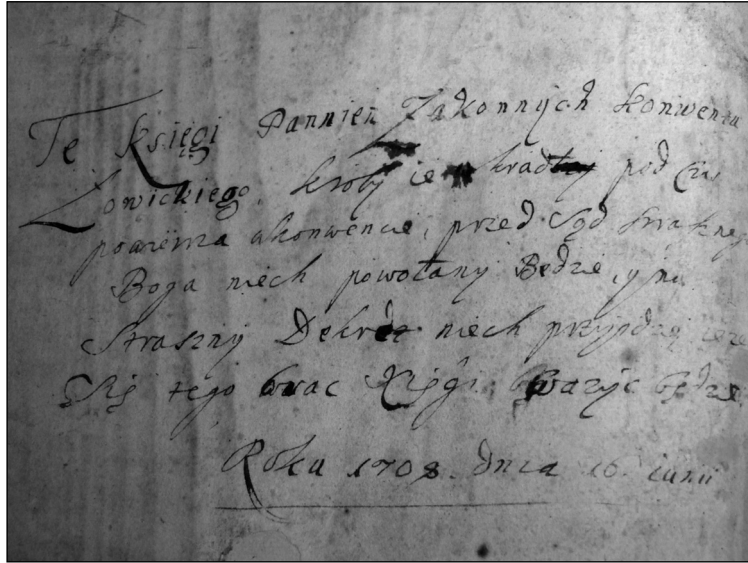 Te księgi Pannien Zakonnych Konwentu
Łowickiego. ktoby ie ukradł pod czas
powietrza akonwencie, przed Sąd straszny
Boga niech powołany Będzie, y na
Straszny Dekret niech przyjdzie
Się tego brac Księgi, bwazyc będzie
Roku 1708. dnia 16. iunii